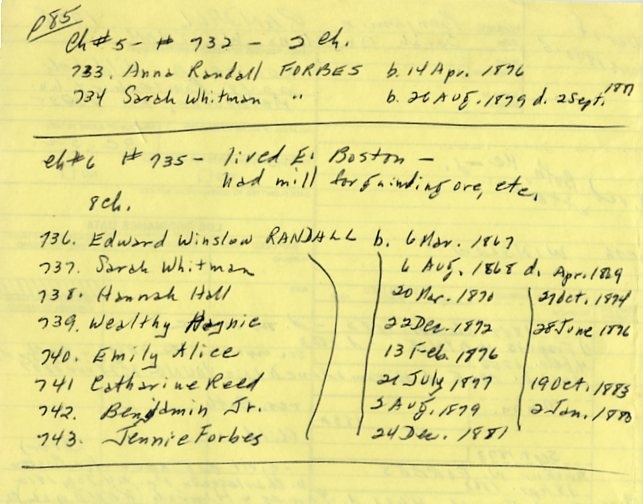 p85
Ch#5 - # 732 - 2 ch.
733. Anna Randall FORBES b. 14 Apr. 1876
734 Sarah Whitman " b. 26 Aug. 1879 d. 2 Sept. 1881
ch#6 # 735 - lived E. Boston -
had mill for grinding ore, etc.
8 ch.
736. Edward Winslow RANDALL b. 6 Mar. 1867
737. Sarah Whitman 6 Aug. 1868 d. Apr. 1869
738. Hannah Hall 20 Mar. 1870 27 Oct. 1874
739. Wealthy Haynie 22 Dec. 1872 28 June 1876
740. Emily Alice 13 Feb. 1876
741 Catharine Reed 21 July 1877 19 Oct. 1883
742. Benjamin Jr. Aug. 1879 2 Jan. 1880
743. Jennie Forbes 24 Dec. 1881